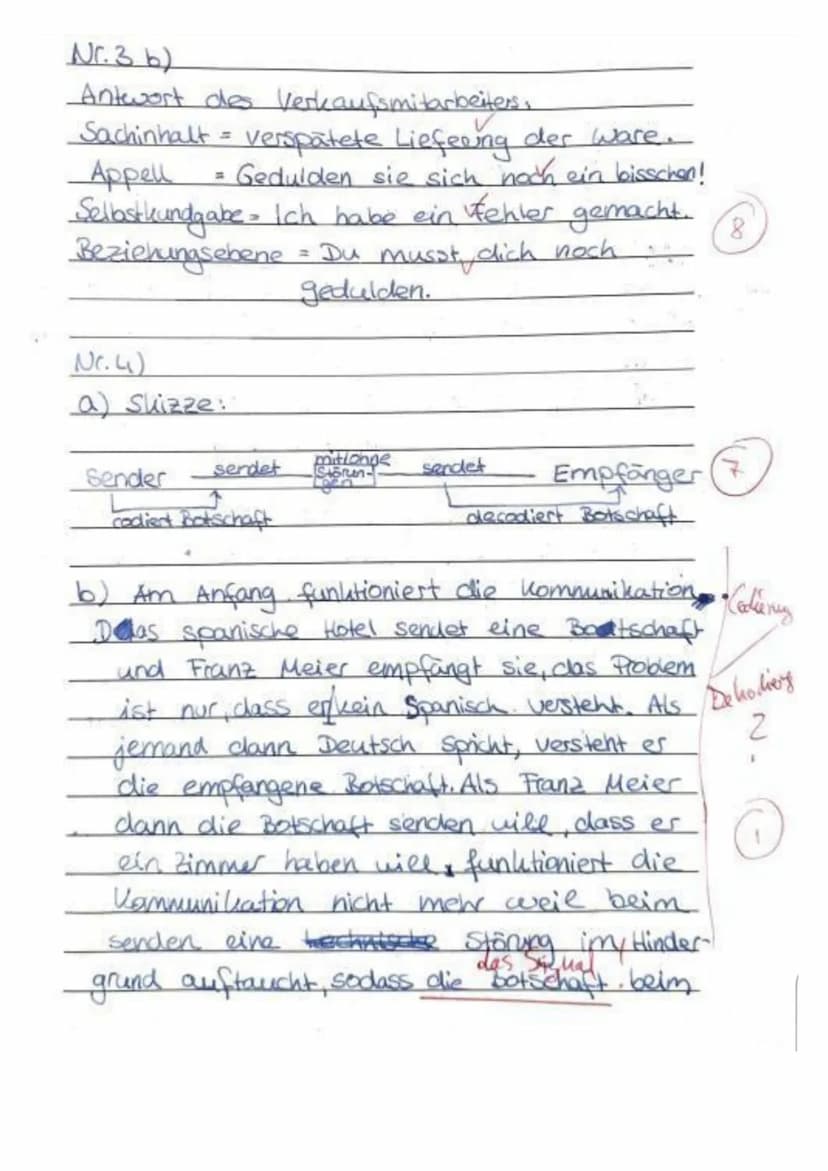 Nr. 3 b)
Antwort des Verkaufsmitarbeiters.
Sachinhalt = verspätete Lieferung der Ware.
Appell = Gedulden sie sich noch ein bisschen!
Selbstkundgabe = Ich habe ein Fehler gemacht.
8
Beziehungsebene = Du musst dich noch
gedulden.
Nr. 4)
a) Skizze:
Sender sendet mögliche Störun-gen sendet Empfänger
7
codiert Botschaft decodiert Botschaft
b) Am Anfang funktioniert die Kommunikation.
Codierung
Das spanische Hotel sendet eine Botschaft
und Franz Meier empfängt sie, das Problem
ist nur, dass er kein Spanisch versteht. Als
Dekodierg
?
jemand dann Deutsch spricht, versteht er
die empfangene Botschaft. Als Franz Meier
dann die Botschaft senden will, dass er
1
ein Zimmer haben will, funktioniert die
Kommunikation nicht mehr weil beim
senden eine technische Störung im Hinder-
das Signal
grund auftaucht, sodass die botschaft beim